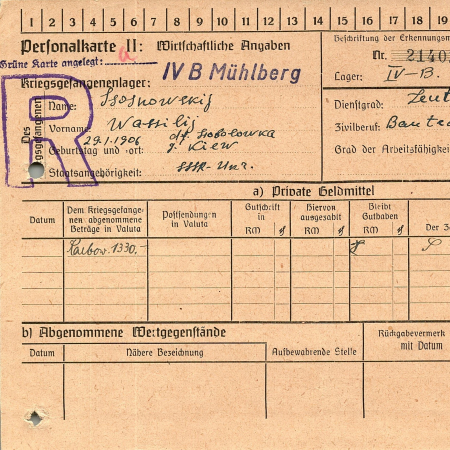 1 2 3 4 5 6 7 8 9 10 11 12 13 14 15 16 17 18 19
Personalkarte II: Wirtschaftliche Angaben
Grüne Karte angelegt:
Kriegsgefangenenlager: IV B Mühlberg
Beschriftung der Erkennungsm
Nr. 2140
Lager: IV-B.
Des
gsgefangenen
R
Name: Ssosnowskij
Vorname: Wassilij
29.1.1906
Geburtstag und -ort: Kiew
Staatsangehörigkeit: SSSR-Ukr.
Dienstgrad:
Zivilberuf: Bautec
Grad der Arbeitsfähigkei
a) Private Geldmittel
Datum
Dem Kriegsgefange-
nen abgenommene
Beträge in Valuta
Postsendungen
in Valuta
Gutschrift
in
RM ₰
Hiervon
ausgezahlt
RM ₰
Bleibt
Guthaben
RM ₰
Der Za
1330.-
b) Abgenommene Wertgegenstände
Datum
Nähere Bezeichnung
Aufbewahrende Stelle
Rückgabevermerk
mit Datum